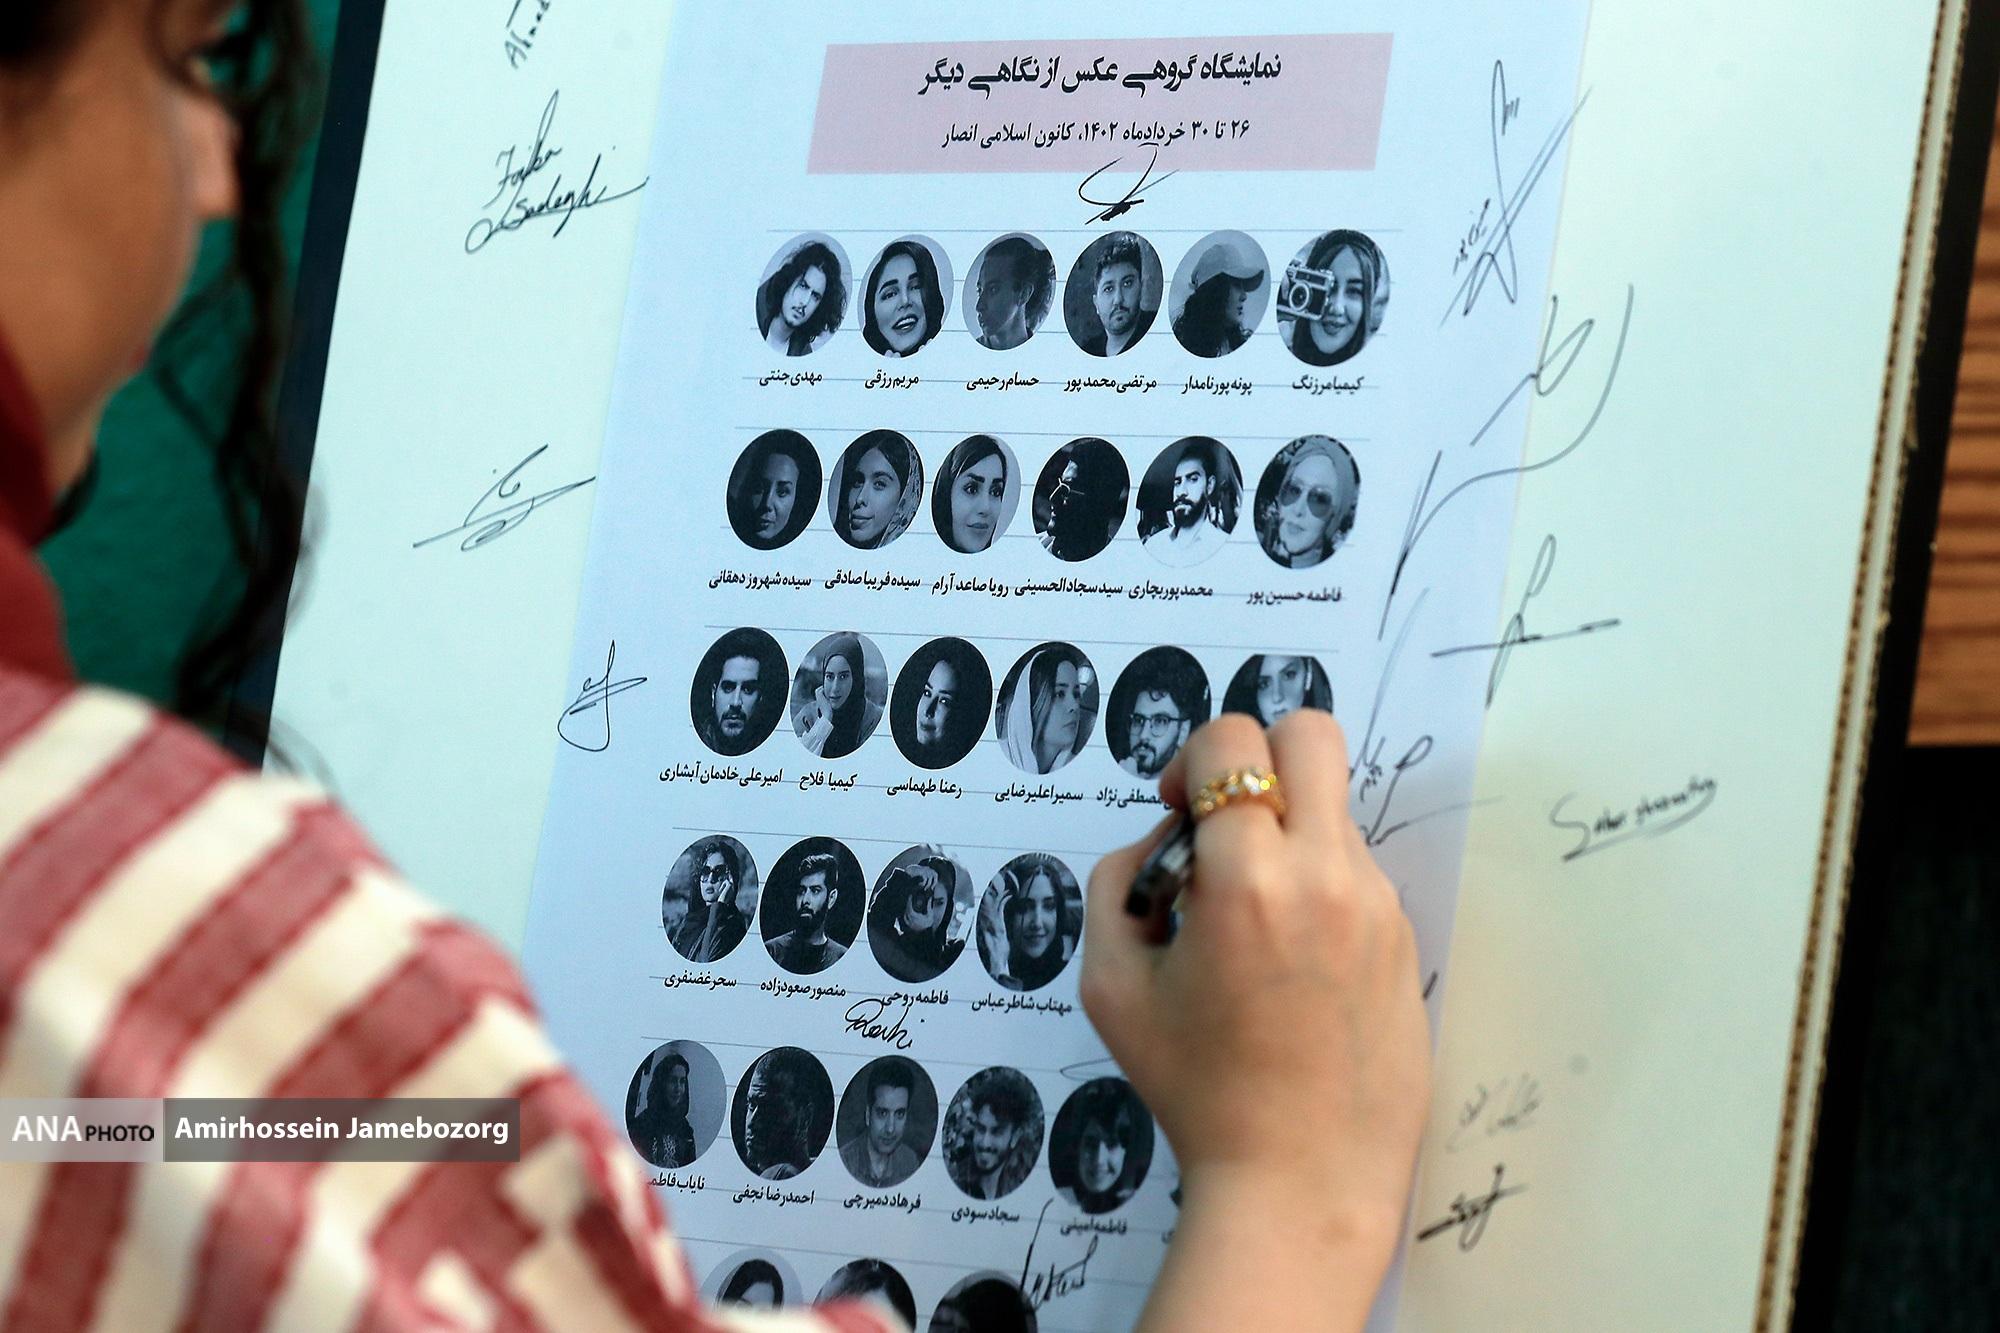 Ahmad
نمایشگاه گروهی عکس از نگاهی دیگر
۲۶ تا ۳۰ خردادماه ۱۴۰۲، کانون اسلامی انصار
Sadeghi
کیمیا مرزنگ
پونه پورنامدار
مرتضی محمدپور
حسام رحیمی
مریم رزقی
مهدی جنتی
فاطمه حسین پور
محمد پوربچاری
سید سجاد الحسینی
رویا صاعد آرام
سیده فریبا صادقی
سیده شهروز دهقانی
مصطفی نژاد
سمیرا علیرضایی
رعنا طهماسی
کیمیا فلاح
امیرعلی خادمان آبشاری
مهتاب شاطرعباس
فاطمه روحی
منصور صعودزاده
سحر غضنفری
Roohi
فاطمه امینی
سجاد سودی
فرهاد دمیرچی
احمدرضا نجفی
نایاب فاطم
ANA PHOTO
Amirhossein Jamebozorg